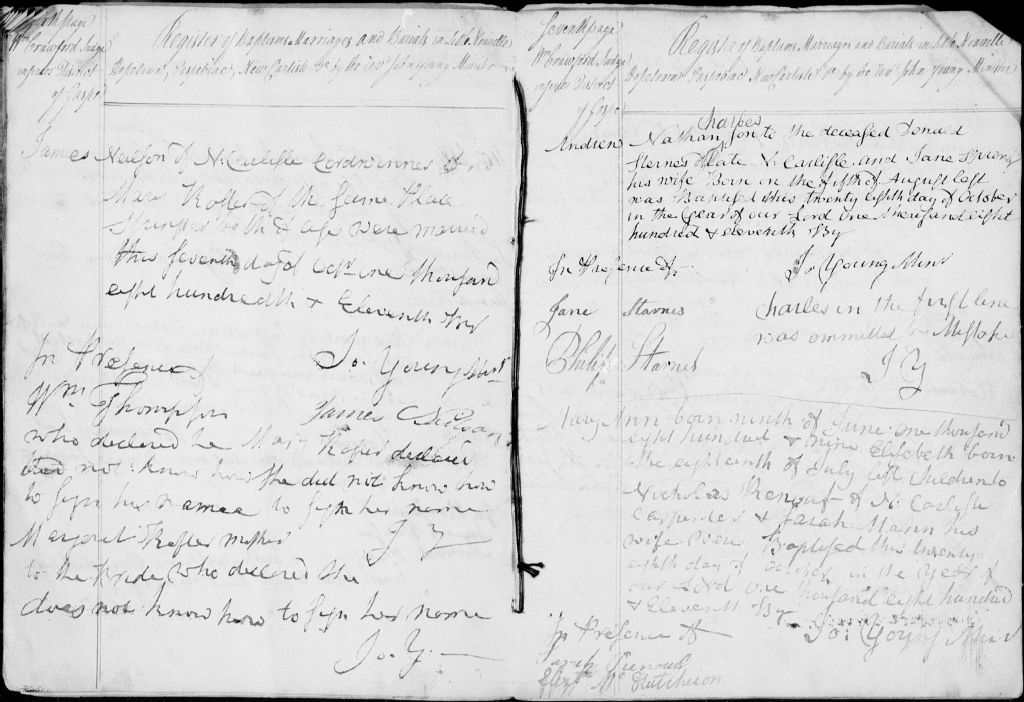 Page
Wm Crawford Judge
inferior District
of Gaspe
Register of Baptisms Marriages and Burials in Little Nouvelle
Hopetown, Paspebiac, New Carlisle &c by the Rev John young Minister
James of N. Carlisle Cordwinner &
Mary of the Same Place
both of age were married
this seventh day of one thousand
eight hundredth & Eleventh By
In Presence of
Jo: Young Minr
Wm Thompson
James
who declared he
did not know how
to sign his namee
Mary declared
She did not know how
to sign his name
J Y
Margaret mother
to the Bride, who declared she
does not know how to sign her name
Jo. Y.
Seventh page
Wm Crawford Judge
inferior District
of Gaspe
Register of Baptisms Marriages and Burials in Little Nouvelle
Hopetown Paspebiac New Carlisle &c by the Rev John young Minister
Charles
Andrew Nathan, son to the deceased Donald
of late N. Carlisle and Jane
his wife Born in the fifth of August last
was Baptised this twenty eighth day of October
in the year of our Lord one thousand eight
hundred & eleventh By
In Presence of
Jo Young Minr
Jane Starnes
Philip Starnes
Charles in the first line
was ommitted by Mistake
J Y
Mary Ann born ninth of June one thousand
eight hundred & nine Elisebeth born
the eighteenth of July last Children to
Nicholas Renouf of N: Carlisle
Carpenter & Sarah Mann his
wife were Baptised this twenty
eighth day of october in the year of
our Lord one thousand eight hundred
& Eleventh By
Jo: Young Minr
In Presence of
Sarah Renouf
Mc Hutcheson